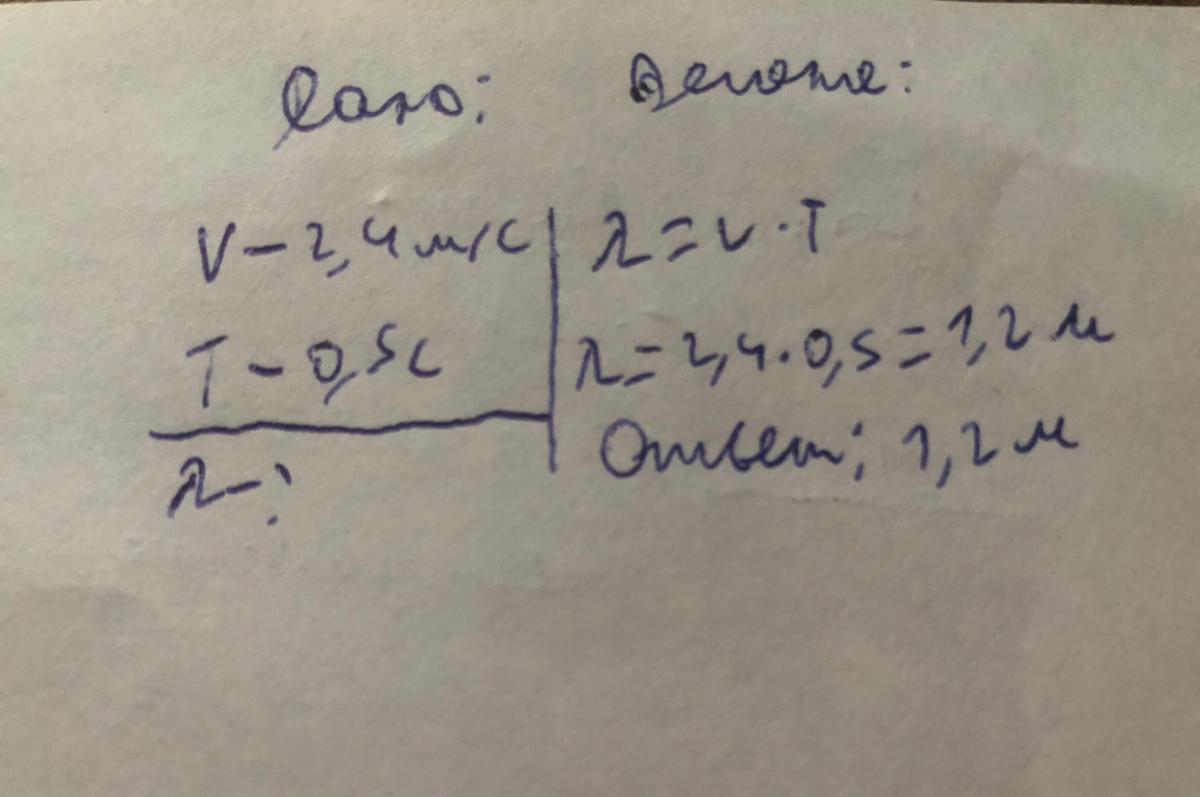 Дано: Решение:
V - 2,4 м/с λ = v · T
T - 0,5с λ = 2,4 · 0,5 = 1,2 м
λ - ? Ответ: 1,2 м